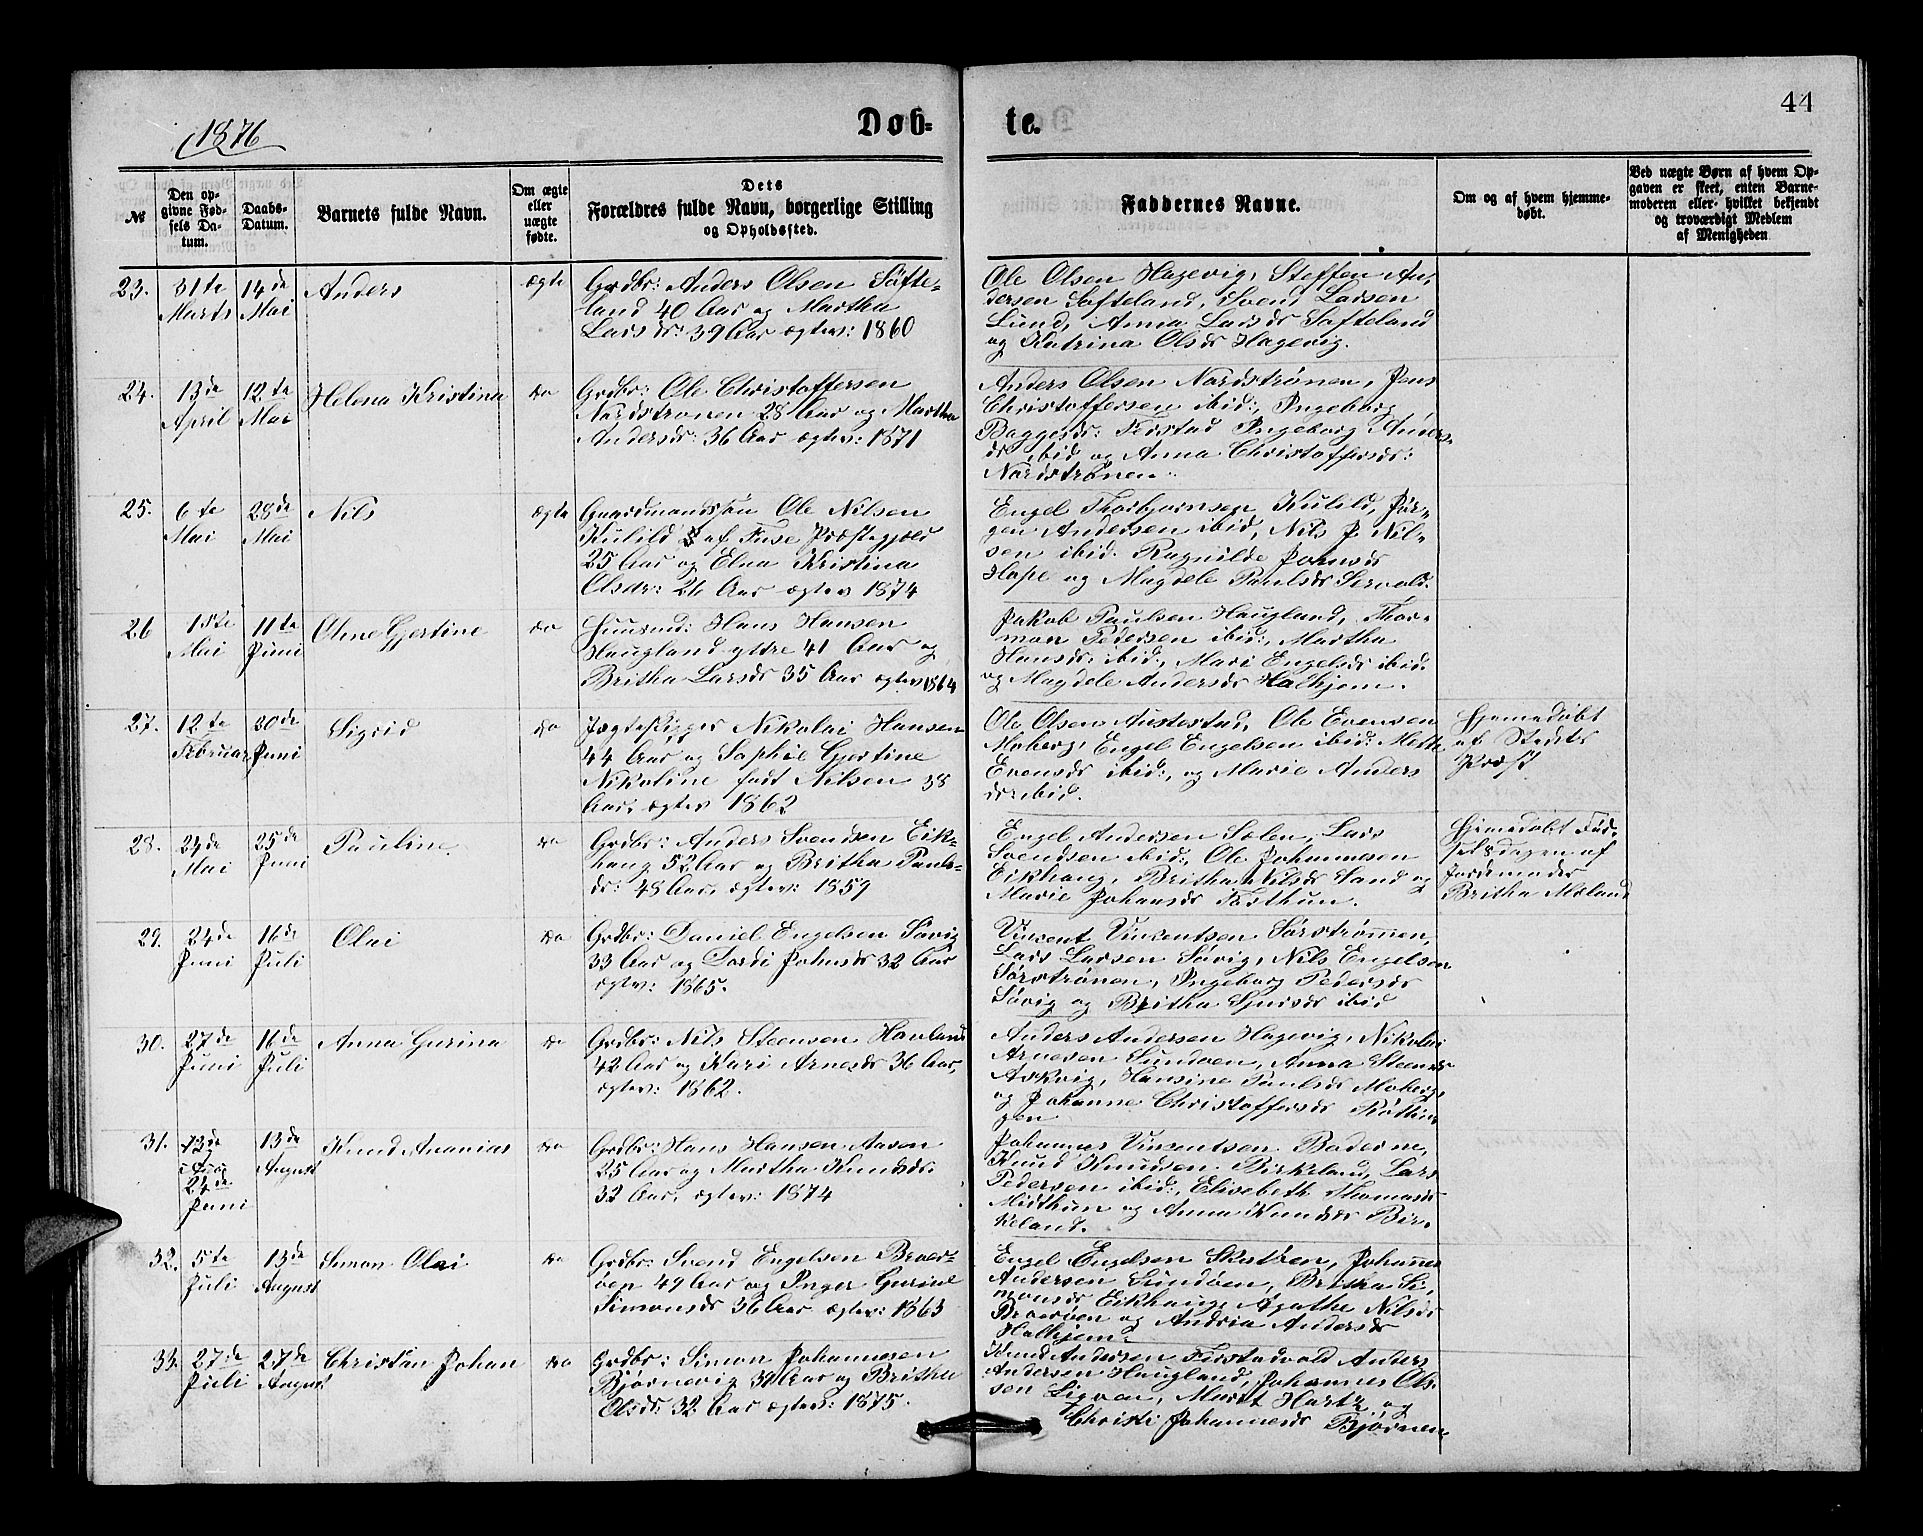 1876
Døb-
te.
44
№
Den op-
givne Fød-
sels Da-
tum.
Daabs-
Datum.
Barnets fulde Navn.
Om ægte
eller
uægte
fødte.
Dets
Forældres fulde Navn, borgerlige Stilling
og Opholdssted.
Faddernes Navne.
Om og af hvem hjemme-
døbt.
Ved uægte Børn af hvem Op-
gaven er skeet, enten Barne-
moderen eller hvilket bekjendt
og troværdigt Medlem
af Menigheden
23.
31te
Marts
14de
Mai
Anders
ægte
Grdbr: Anders Olsen Söfte-
land 40 Aar og Martha
Larsdr: 39 Aar ægtev: 1860
Ole Olsen Hagevig, Steffen An-
dersen Söfteland, Svend Larsen
Lund, Anna Larsdr Söfteland
og Katrina Olsdr Hagevig.
24.
13de
April
12te
Mai
Helena Kristina
do
Grdbr: Ole Christoffersen
Nordstrønen 28 Aar og Martha
Andersdr: 36 Aar ægtev: 1871
Anders Olsen Nordstrønen, Jens
Christoffersen ibid:, Ingeborg
Baggesdr: Ferstad Ingeborg Anders-
dr ibid og Anna Christoffersdr:
Nordstrønen.
25.
6te
Mai
28de
Mai
Nils
ægte
Gaardmandssøn Ole Nilsen
Kulild af Fuse Præstegjæld
25 Aar og Elna Kristina
Olsdr: 26 Aar ægtev 1874
Engel Thorbjornsen Kulild, Jør-
gen Andersen ibid, Nils J. Nil-
sen ibid. Ragnilde Johnsdr
Hope og Magdele Paulsdr
26
18te
Mai
11te
Juni
Oline Gjertine
do
Huusmd: Hans Hansen
Haugland ytdre 41 Aar og
Britha Larsdr 35 Aar ægtev 1864
Jakob Paulsen Haugland, Thor-
mon Pedersen ibid:, Martha
Hansdr: ibid:, Mari Engelsdr ibid.
og Magdele Andersdr Halhjem.
27.
12te
Februar
30de
Juni
Sigrid
do
Jægteskipper Nikolai Hansen
44 Aar og Sophie Gjertine
Nikoline født Nilsen 38
Aar, ægtev 1862
Ole Olsen Austestad, Ole Evensen
Moberg, Engel Engelsen ibid: Mette
Evensdr ibid:, og Marie Anders
dr ibid.
Hjemedøbt
af Stedets
Præst
28.
24de
Mai
25de
Juni
Pauline
do
Grdbr: Anders Svendsen Eik-
haug 52 Aar og Britha Pauls-
dr: 48 Aar, ægtev: 1859
Engel Andersen Solen, Lars
Svendsen ibid:, Ole Johannesen
Eikhaug, Britha Nilsdr Sand og
Marie Johansdr Tosthun.
Hjemedøbt Fød-
selsdagen af
Jordemoder
Britha Moland
29.
24de
Juni
16de
Juli
Olai
do
Grdbr: Daniel Engelsen Søvig
33 Aar og Dordi Johnsdr 32 Aar
ægtev: 1865.
Vincent Vincentsen Sørstrømen,
Lars Larsen Søvig, Nils Engelsen
Sørstrønen, Ingeborg Pedersdr
Søvig og Britha Sjursdr ibid
30.
27de
Juni
16de
Juli
Anna Gurina
do
Grdbr: Nils Steensen Hauland
42 Aar og Kari Arnesdr 36 Aar,
ægtev: 1862.
Anders Andersen Hagevig, Nikolai
Arnesen Sundøen, Anna Steensdr
Askvig, Hansine Paulsdr Moberg,
og Johanne Christoffersdr Røttin-
gen
31.
24de
Juni
13de
August
Knud Ananias
do
Grdbr: Hans Hansen Aasen
25 Aar og Martha Knudsdr.
32 Aar, ægtev: 1874
Johannes Vincentsen Boderne,
Knud Knudsen Birkeland, Lars
Pedersen ibid:, Elisabeth Thomasdr
Midthun og Anna Knudsdr Bir-
keland.
32.
5te
Juli
13de
August
Simon Olai
do
Grdbr: Svend Engelsen Bruar-
øen 49 Aar og Inger Gurine
Simonsdr 36 Aar ægtev: 1863
Engel Engelsen Skatøen, Johannes
Andersen Sundøen, Britha Si-
monsdr Eikhaug, Agathe Nilsdr
Bruarøen og Andria Andersdr
Halhjem.
33.
27de
Juli
27de
August
Christian Johan
do
Grdbr: Simon Johannesen
Bjørnevig 39 Aar og Britha
Olsdr. 32 Aar ægtev: 1875.
Knud Andersen Ferstadvold Anders
Andersen Haugland, Johannes Ols-
sen Ligven, Marit Hartz og
Christi Johannesdr Bjørnev.